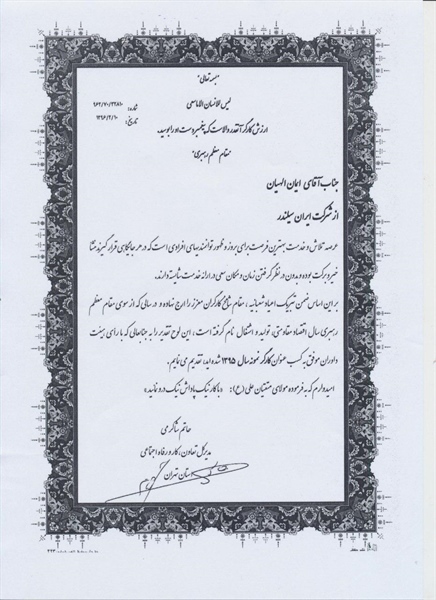 "بسمه تعالی"
لیس للانسان الا ما سعی
شماره: ۹۶۲/۷۰/۲۲۸۱۰
تاریخ: ۱۳۹۶/۲/۱۰
ارزش کارگر آنقدر والاست که پیغمبر دست او را بوسید.
"مقام معظم رهبری"
جناب آقای ایمان الهیان
از شرکت ایران سیلندر
عرصه تلاش و خدمت بهترین فرصت برای بروز و ظهور توانمندیهای افرادی است که در هر جایگاهی قرار گیرند منشأ
خیر و برکت بوده و بدون در نظر گرفتن زمان و مکان سعی در ارائه خدمت شایسته دارند.
بر این اساس ضمن تبریک اعیاد شعبانیه، مقام شامخ کارگران معزز را ارج نهاده و در سالی که از سوی مقام معظم
رهبری سال اقتصاد مقاومتی، تولید و اشتغال نام گرفته است، این لوح تقدیر را به جنابعالی که با رای هیئت
داوران موفق به کسب عنوان کارگر نمونه سال ۱۳۹۵ شده اید، تقدیم می نمایم.
امیدوارم که به فرموده مولای متقیان علی (ع): «با کار نیک پاداش نیک درو نمائید»
حاتم شاکرمی
مدیرکل تعاون، کار و رفاه اجتماعی
استان تهران
۲۲۳